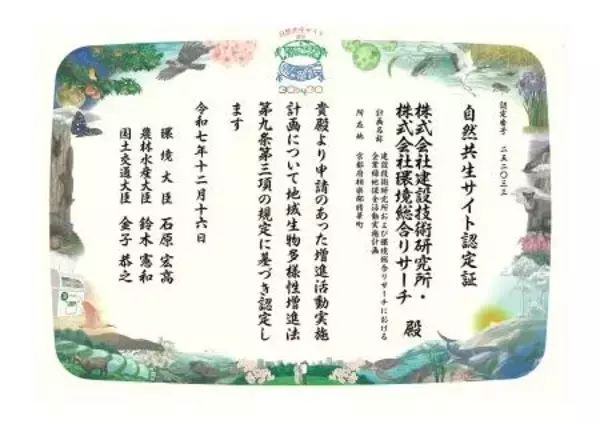 自然共生サイト
認定
30by30
認定番号 二五二〇三三
自然共生サイト認定証
株式会社建設技術研究所・
株式会社環境総合リサーチ 殿
計画名称 建設技術研究所および環境総合リサーチにおける
企業緑地保全活動実施計画
所在地 京都府相楽郡精華町
貴殿より申請のあった増進活動実施
計画について地域生物多様性増進法
第九条第三項の規定に基づき認定し
ます
令和七年十二月十六日
環境大臣 石原 宏高
農林水産大臣 鈴木 憲和
国土交通大臣 金子 恭之